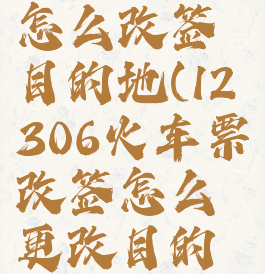 怎么改签
目的地(12
306火车票
改签怎么
更改目的